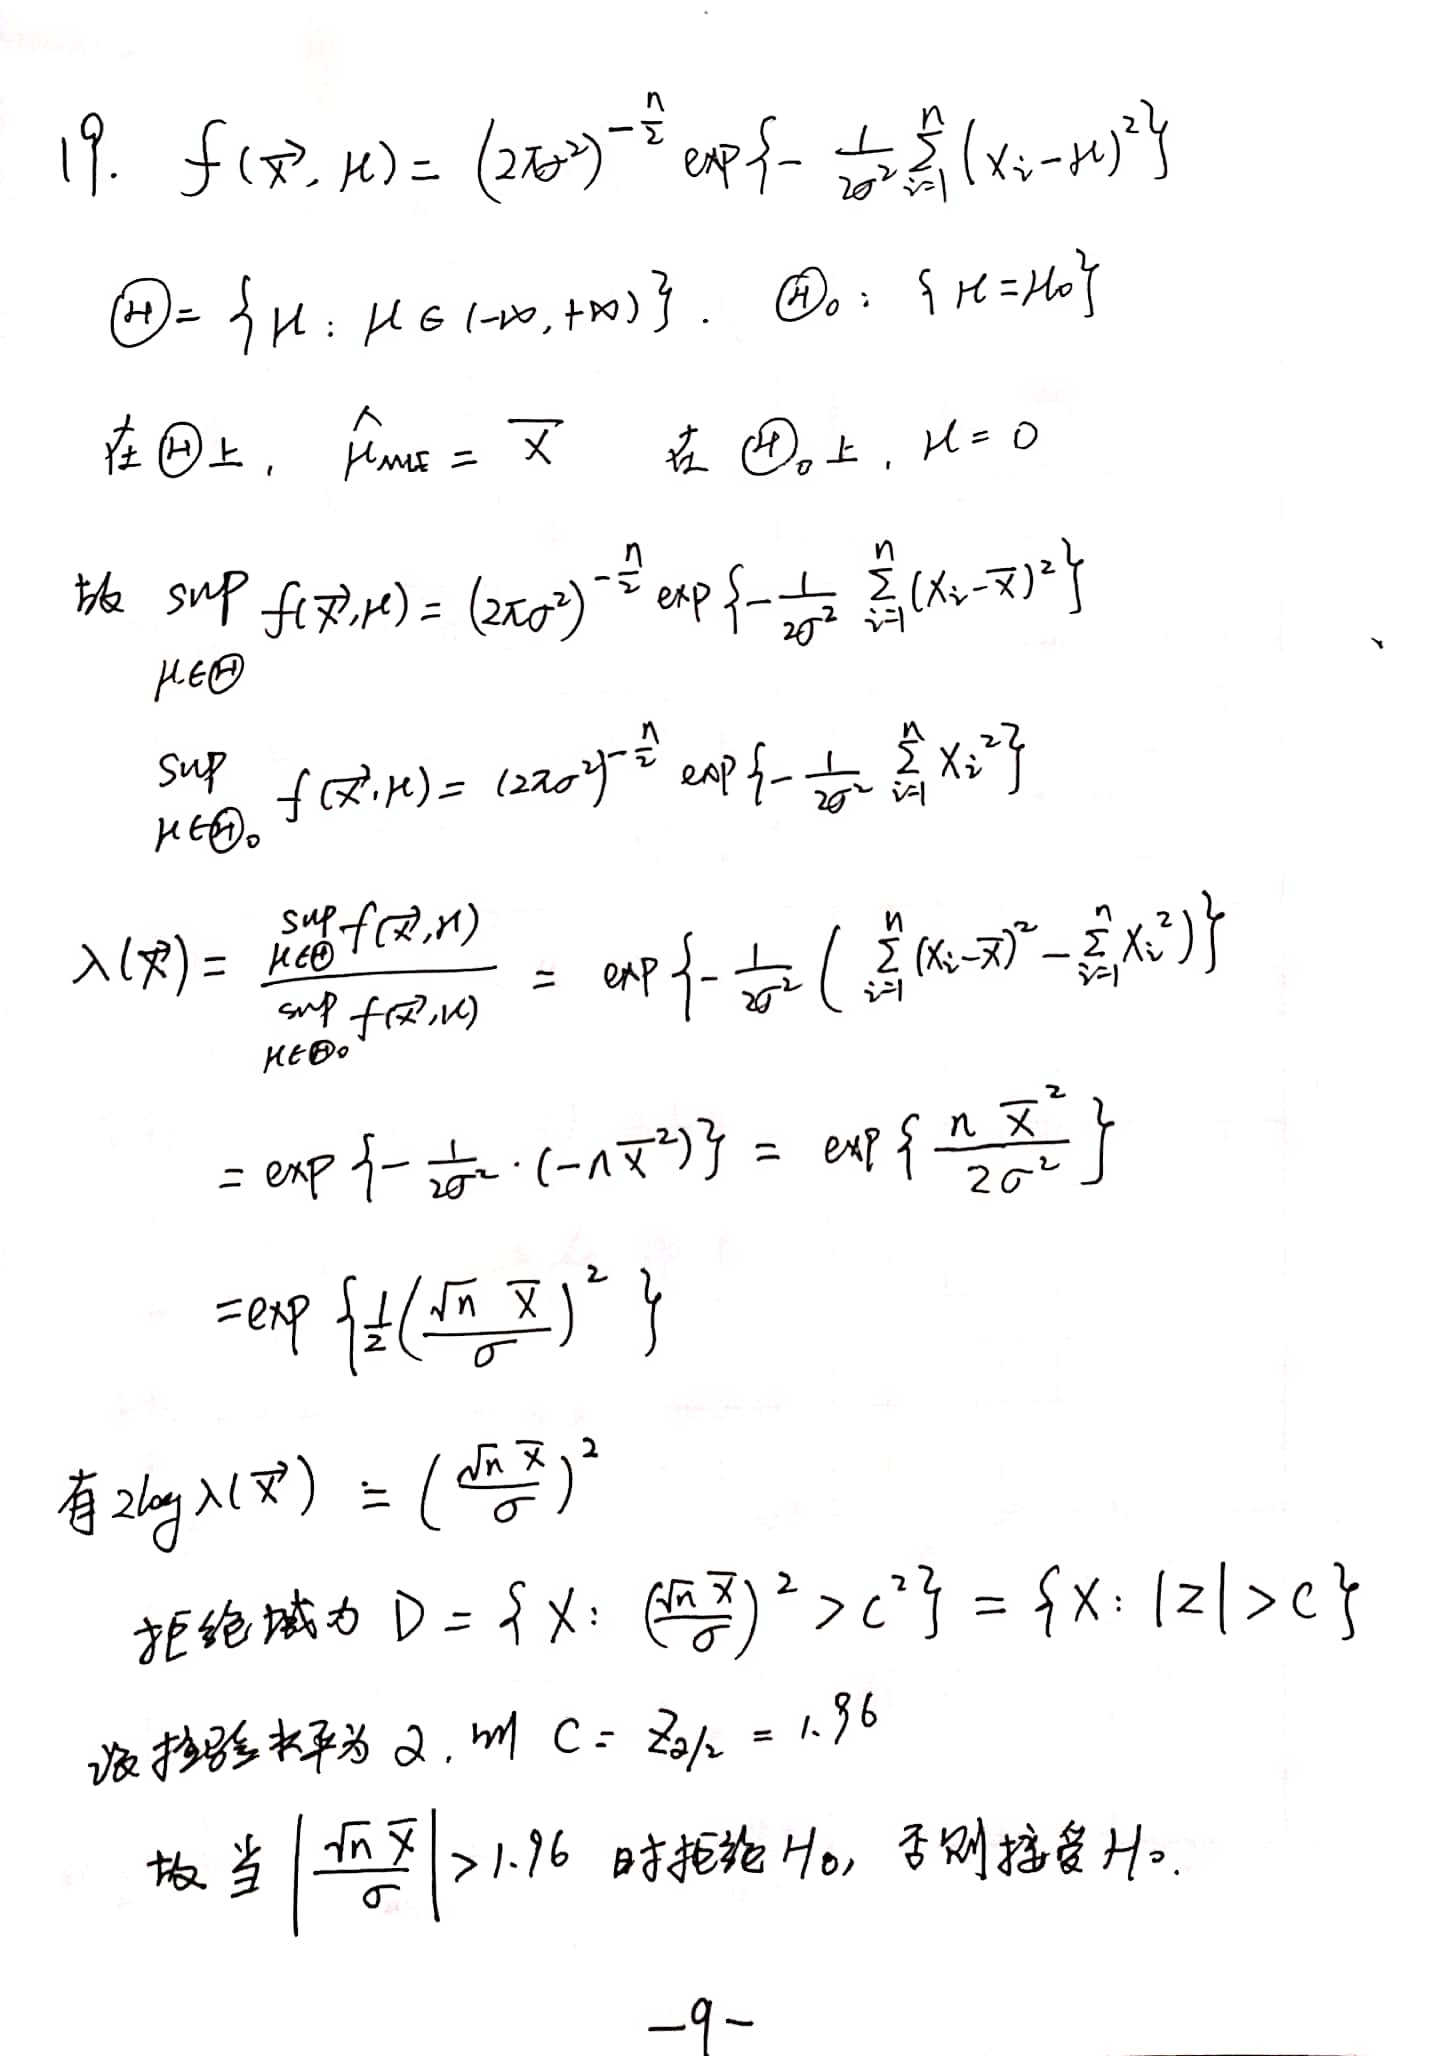 19. f(x⃗, μ) = (2πσ²)^{-n/2} exp{- 1/2σ² Σ_{i=1}^{n} (xᵢ-μ)²}
Ⓗ = {μ: μ∈(-∞,+∞)}. Ⓗ₀: {μ=μ₀}
在Ⓗ上, μ̂_MLE = X̄ 在Ⓗ₀上, μ=0
故 sup_{μ∈Ⓗ} f(x⃗,μ) = (2πσ²)^{-n/2} exp{- 1/2σ² Σ_{i=1}^{n} (xᵢ-x̄)²}
sup_{μ∈Ⓗ₀} f(x⃗,μ) = (2πσ²)^{-n/2} exp{- 1/2σ² Σ_{i=1}^{n} xᵢ²}
λ(x⃗) = sup_{μ∈Ⓗ} f(x⃗,μ) / sup_{μ∈Ⓗ₀} f(x⃗,μ) = exp{- 1/2σ² ( Σ_{i=1}^{n} (xᵢ-x̄)² - Σ_{i=1}^{n} xᵢ²)}
= exp{- 1/2σ² · (-n x̄²)} = exp{ n x̄² / 2σ² }
= exp{ 1/2 ( √n x̄ / σ )² }
有 2log λ(x⃗) = ( √n x̄ / σ )²
拒绝域为 D = {X: ( √n x̄ / σ )² > c²} = {X: |Z| > c}
设检验水平为 α, 则 C = Z_{α/2} = 1.96
故当 | √n x̄ / σ | > 1.96 时拒绝 H₀, 否则接受 H₀.
-9-